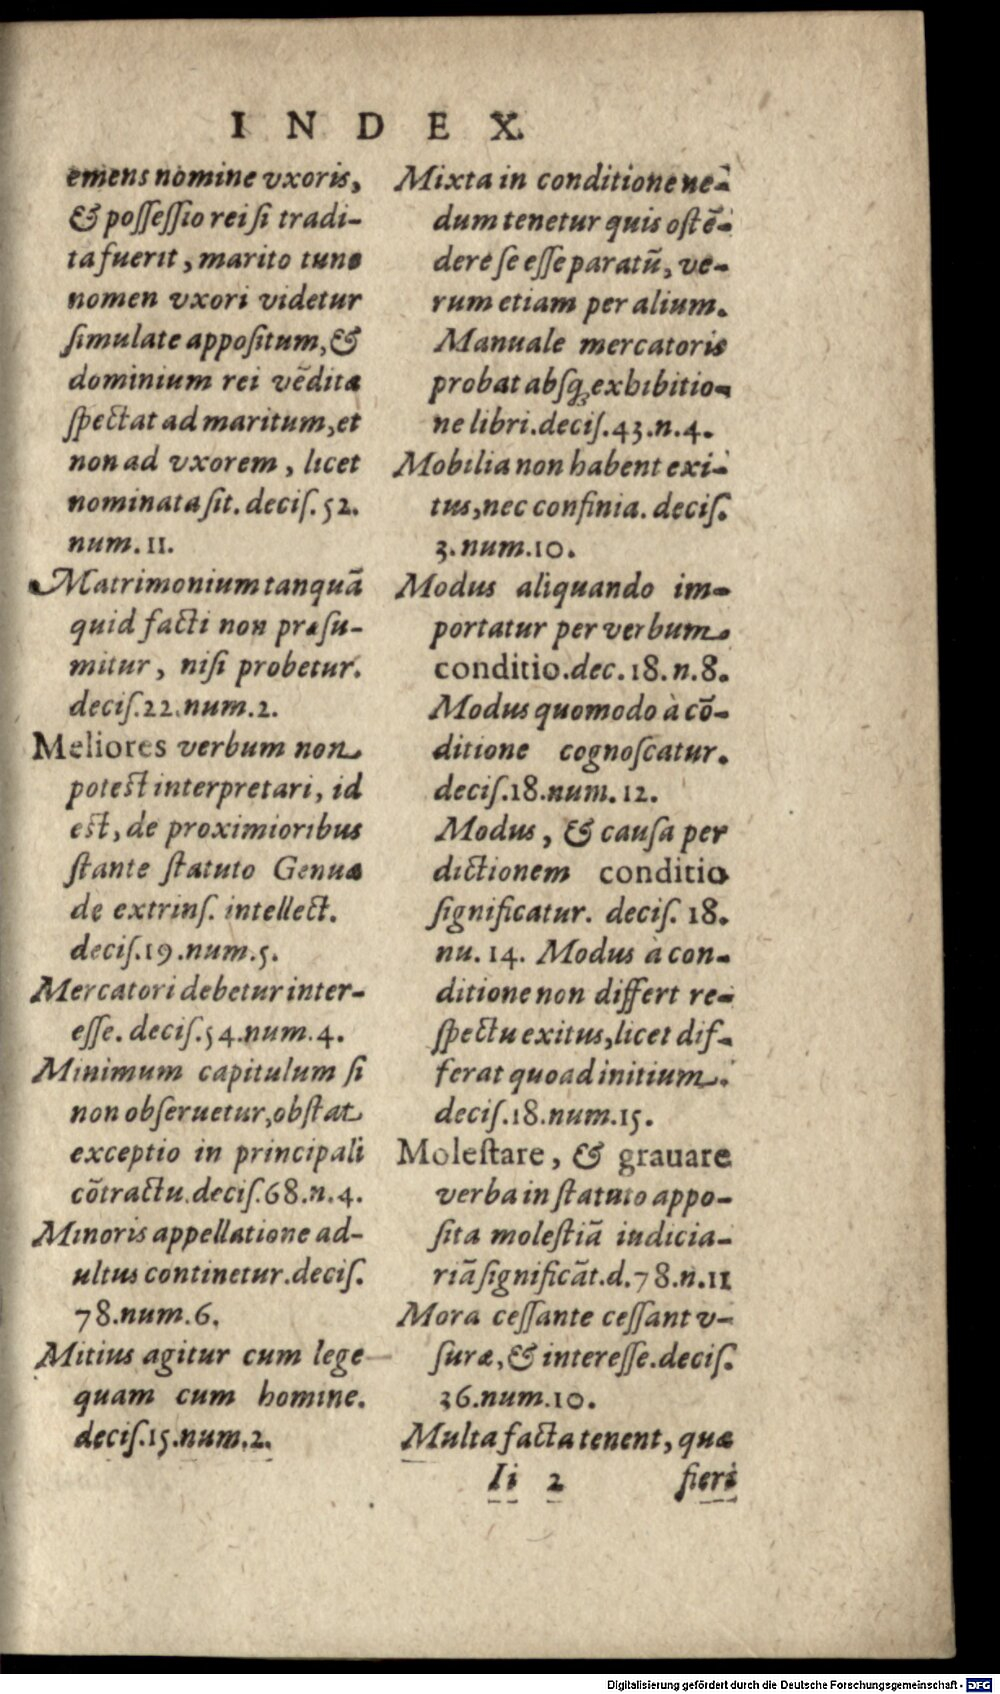 INDEX.
emens nomine vxoris,
& possessio rei si tradi-
ta fuerit, marito tunc
nomen vxori videtur
simulate appositum, &
dominium rei vēditæ
spectat ad maritum, et
non ad vxorem, licet
nominata sit. decis. 52.
num. 11.
Matrimonium tanquā
quid facti non præsu-
mitur, nisi probetur.
decis. 22. num. 2.
Meliores verbum non
potest interpretari, id
est, de proximioribus
stante statuto Genuæ
de extrins. intellect.
decis. 19. num. 5.
Mercatori debetur inter-
esse. decis. 54. num. 4.
Minimum capitulum si
non obseruetur, obstat
exceptio in principali
cōtractu. decis. 68. n. 4.
Minoris appellatione ad-
ultus continetur. decis.
78. num. 6.
Mitius agitur cum lege
quam cum homine.
decis. 15. num. 2.
Mixta in conditione ne-
dum tenetur quis ostē-
dere se esse paratū, ve-
rum etiam per alium.
Manuale mercatoris
probat absq; exhibitio-
ne libri. decis. 43. n. 4.
Mobilia non habent exi-
tus, nec confinia. decis.
3. num. 10.
Modus aliquando im-
portatur per verbum
conditio. dec. 18. n. 8.
Modus quomodo à cō-
ditione cognoscatur.
decis. 18. num. 12.
Modus, & causa per
dictionem conditio
significatur. decis. 18.
nu. 14. Modus à con-
ditione non differt re-
spectu exitus, licet dif-
ferat quoad initium.
decis. 18. num. 15.
Molestare, & grauare
verba in statuto appo-
sita molestiā iudicia-
riā significāt. d. 78. n. 11
Mora cessante cessant v-
suræ, & interesse. decis.
36. num. 10.
Multa facta tenent, quæ
Ii 2 fieri
Digitalisierung gefördert durch die Deutsche Forschungsgemeinschaft - DFG